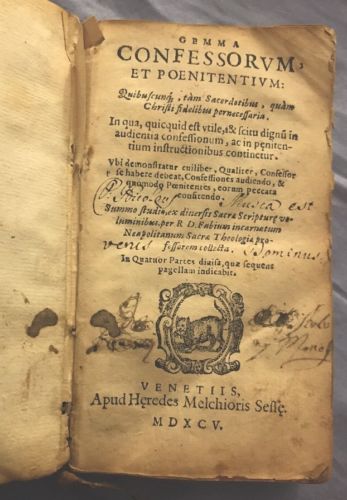 GEMMA
CONFESSORVM,
ET POENITENTIVM:
Quibuscunq;, tàm Sacerdotibus, quàm
Christi fidelibus pernecessaria.
In qua, quicquid est vtile, & scitu dignũ in
audientia confessionum, ac in pęniten-
tium instructionibus continetur.
Vbi demonstratur cuilibet, Qualiter, Confessor
se habere debeat, Confessiones audiendo, &
quomodo Pœnitentes, eorum peccata
confitendo.
Summo studio, ex diuersis Sacra Scriptura vo-
luminibus, per R. D. Fabium incarnatum
Neapolitanum Sacra Theologia pro-
fessorem collecta.
est
Dominus
In Quatuor Partes diuisa, quæ sequens
pagellam indicabit.
VENETIIS,
Apud Hęredes Melchioris Sessę.
MDXCV.